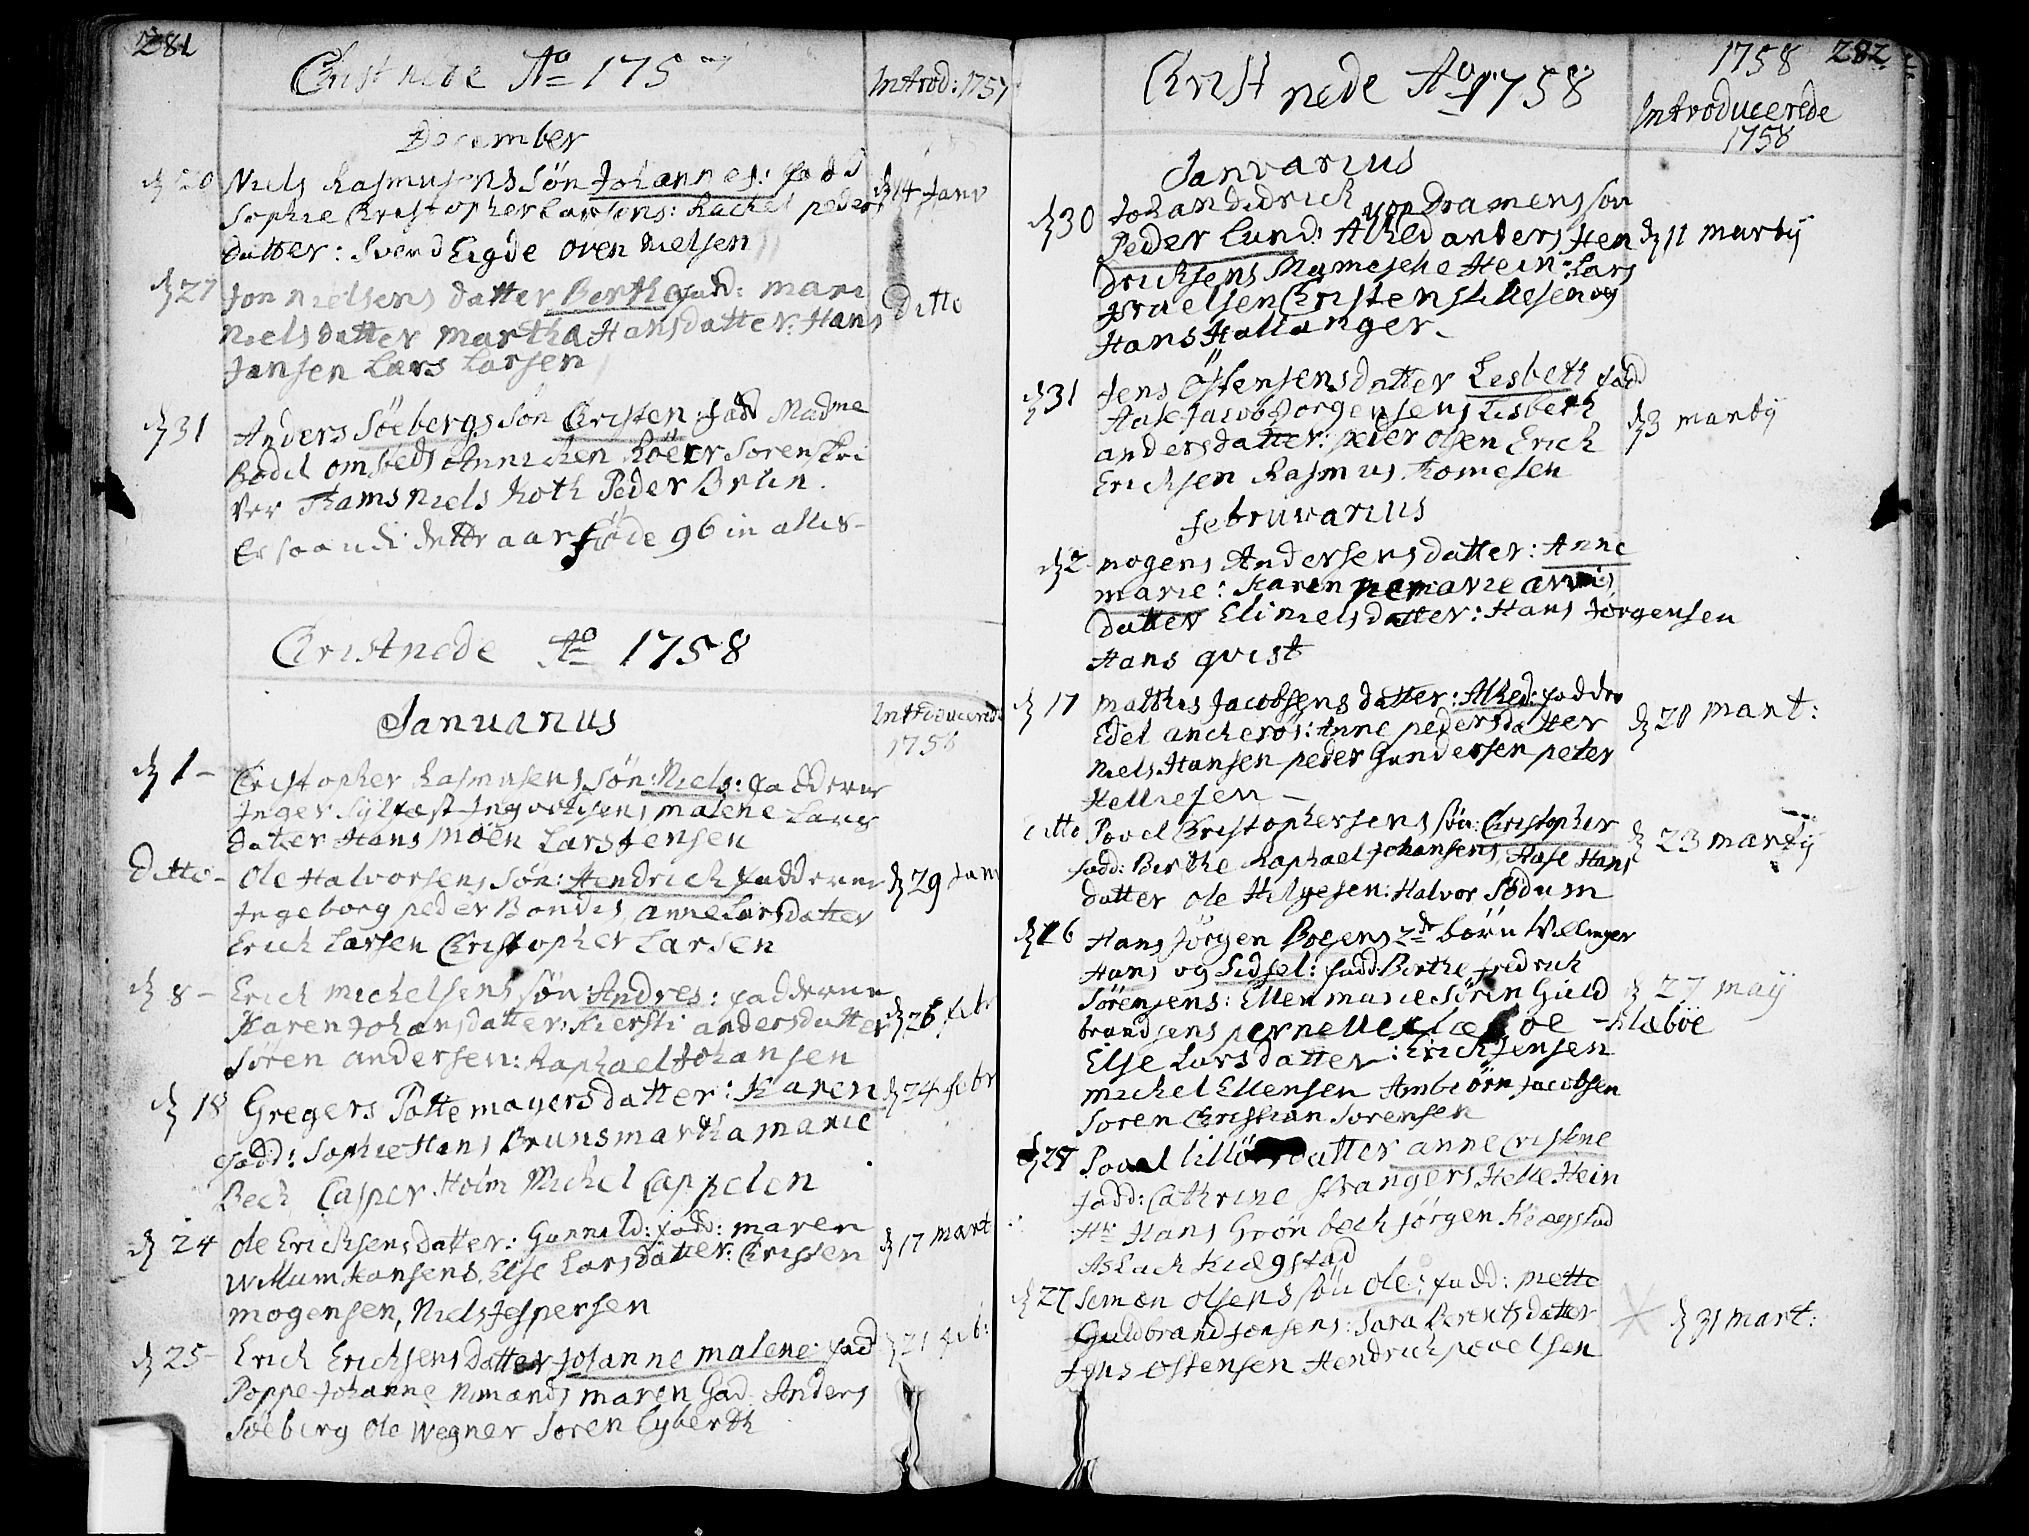 281
Christnede Ao 1757
Introd: 1757
December
d 20 Niels Rasmusens søn Johannes: fadd
d 14 Janv
Sophie Christopher Larsens: Rachel peders
datter: Svend Eigde oven Nielsen
d 27 Jon Nielsens datter Berthe fadd: mari
ditto
Nielsdatter Martha Hansdatter: Hans
Jansen Lars Larsen
d 31 Anders Søebergs søn Christen fadd Madme
Rodil ombeds Annichen Röer Sorenskri
ver Thams Niels Roth Peder Brun.
Er saa udi dette aar föde 96 in alles
Christnede Ao 1758
Januarius
Introducerede
1758
d 1 - Christopher Rasmusens søn: Niels: fadderne
Inger Sylfest Ingvoldsens malene Lars
datter Hans Möen Lars Jensen
Ditto - Ole Halvorsens søn: Hendrich fadderne
d 29 Jan
Ingeborg peder Bondes anne Larsdatter
Erich Larsen Christopher Larsen
d 8 - Erich Michelsens søn: Andres: fadderne
d 26 febr
Karen Johansdatter: Kiersti andersdatter
Søren andersen: Raphael Johansen
d 18 Gregers Pottemagers datter: Karen
d 24 febr
fadd: Sophie Hans Bruns martha marie
Bech Casper Holm Michel Cappelen
d 24 Ole Erichsens datter: Gunnild: fadd: maren
d 17 mart
Willum Hansens, Else Larsdatter: Christen
mogensen, Niels Jespersen
d 25 - Erich Erichsens datter Johanne malene: fad
d 21 feb:
Poppe Johanne Numands maren Gad Anders
Søeberg Ole Wegner Soren Cyberth
282
Christnede Ao 1758
1758
Introducerede
1758
Janvarius
d 30 Johan didrich von Dramens søn
Peder Lund: Alhed anders Hen
d 11 marty
drichsens Mamesche Hein: Lars
Israelsen Christen Lillesen og
Hans Hallanger
d 31 Jens Östensens datter Lesbeth fadd
Aase Jacob Jorgensens Lisbeth
d 3 marty
andersdatter: peder olsen Erich
Erichsen Rasmus Thomesen
februvarius
d 2 mogens Andersens datter: Anne
marie: Karen marie
datter Eli nielsdatter: Hans Jørgensen
Hans qvist
d 17 Mathis Jacobsens datter: Alhed: faddre
d 20 mart:
Edel ancherös: Anne pedersdatter
Niels Hansen peder Gundersen peter
Hellesen
ditto Povel Christophersens søn: Christopher
d 23 marty
fadd: Berthe Raphael Johansens, Aase Hans
datter Ole Helgesen: Halvor Södum
d 26 Hans Jörgen Bogens 2de børn Villinger
Hans og Sidsel: fadd: Berthe fredrich
d 27 maij
Sörensens: Ellen marie Sören Guld
brandsens pernelle Klæboe
Else Larsdatter: Erich Jensen
Michel Ellensen Ambiörn Jacobsen
Soren Christian Sorensen
d 27 Povel datter anne Cristine
fadd: Cathrine Svangers Helle Hein
Hr Hans Grön bech Jörgen Kiegstad
Aslach Kiægstad
d 27 Semæn olsens søn ole: fadd: mette
Guldbrand Jonsens: Sara Berentsdatter
d 31 mart:
Jens Ostensen Hendrich povelsen